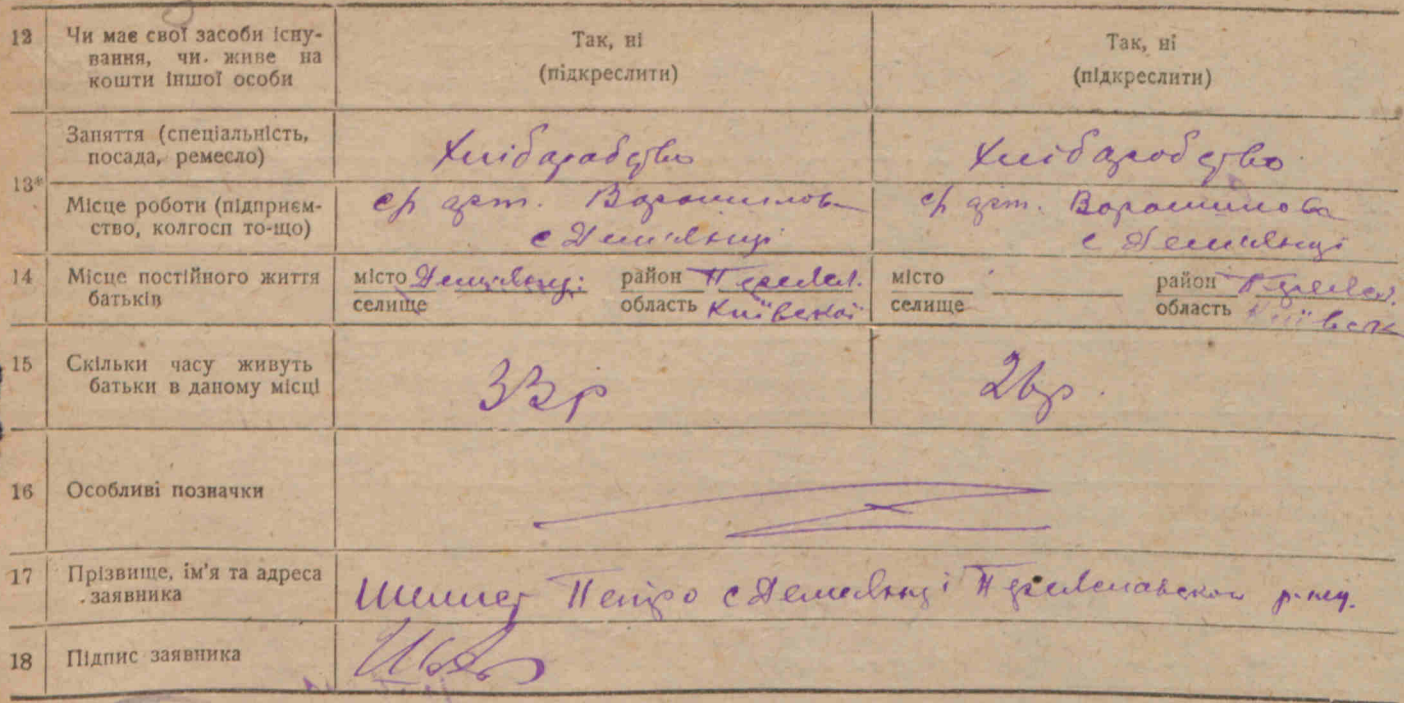 12 Чи має свої засоби існу-
вання, чи живе на
кошти іншої особи
Так, ні
(підкреслити)
Так, ні
(підкреслити)
13*
Заняття (спеціальність,
посада, ремесло)
Хлібаробство
Хлібаробство
Місце роботи (підприєм-
ство, колгосп то-що)
с/г арт. Ворошилов
с Демʼянці
с/г арт. Ворошилова
с Демʼянці
14 Місце постійного життя
батьків
місто Демʼянці район Переясл.
селище область Київской
місто район Переясл.
селище область Київск
15 Скільки часу живуть
батьки в даному місці
33р
26р.
16 Особливі позначки
17 Прізвище, ім'я та адреса
заявника
Петро с Демʼянці Переяславскои р-ну.
18 Підпис заявника